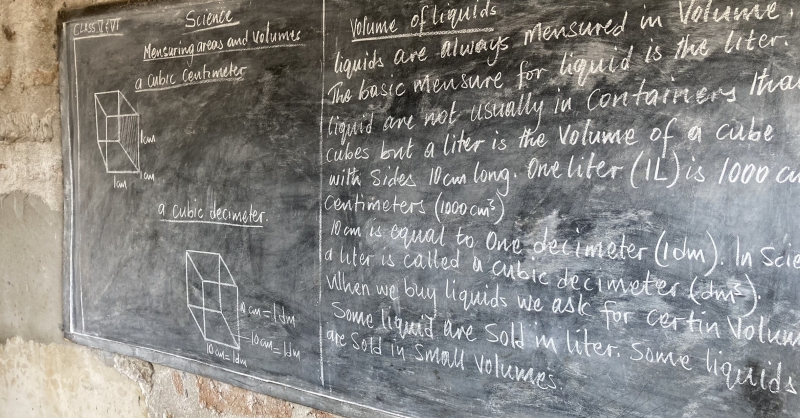 CLASS V & VI
Science
Mensuring areas and volumes
a cubic centimeter
1cm
1cm
1cm
a cubic decimeter.
10 cm = 1dm
10cm = 1dm
10cm = 1dm
Volume of liquids
liquids are always mensured in Volume.
The basic mensure for liquid is the liter.
liquid are not usually in containers that
cubes but a liter is the Volume of a cube
with Sides 10cm long. One liter (1L) is 1000 cu
centimeters (1000cm³)
10cm is equal to One decimeter (1dm). In Scie
a liter is called a cubic decimeter (dm³).
When we buy liquids we ask for certin Volum
Some liquid are Sold in liter. Some liquids
are Sold in Small Volumes.